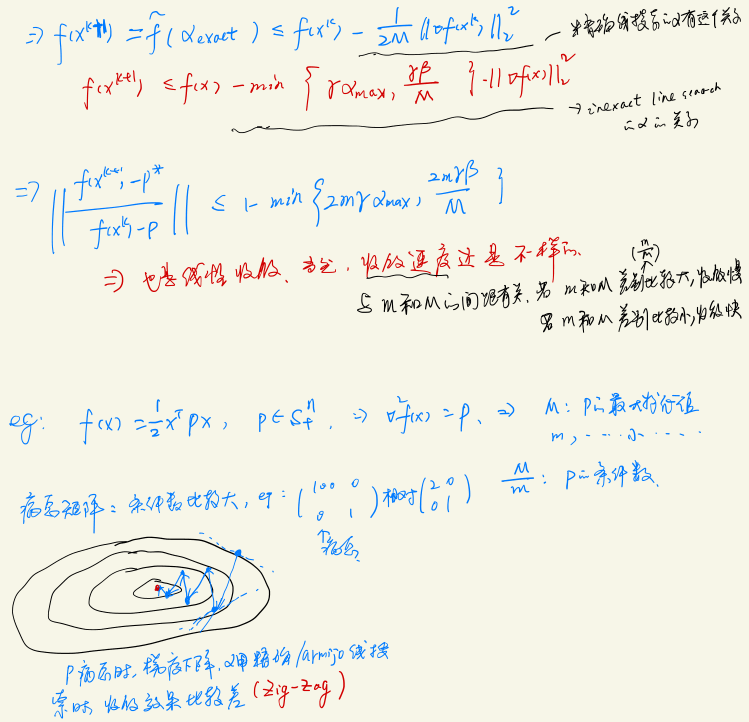 ⇒ f(x^{k+1}) = f̃(α_exact) ≤ f(x^k) - \frac{1}{2M} ‖∇f(x^k)‖_2^2 — 精确线搜索的α有这个关系
f(x^{k+1}) ≤ f(x) - min { γα_max, \frac{γβ}{M} } · ‖∇f(x)‖_2^2
→ inexact line search
的α的关系
⇒ ‖ \frac{f(x^{k+1}) - p^*}{f(x^k) - p} ‖ ≤ 1 - min { 2mγα_max, \frac{2mγβ}{M} }
⇒ 也是线性收敛、当然,收敛速度还是不一样的.
与 m和M的间距有关. 若 m和M 差别比较大,收敛慢
若 m和M 差别比较小,收敛快
eg: f(x) = \frac{1}{2} x^T P x, P ∈ S_+^n, ⇒ ∇^2 f(x) = P、⇒ M: P的最大特征值
m, ····· 小 ·····
\frac{M}{m}: P的条件数.
病态矩阵: 条件数比较大, eg: (100 0 0 1) 相对 (2 0 0 1)
↑病态
P病态时, 梯度下降, α用精确/armijo线搜
索时 收敛效果比较差 (Zig-Zag)